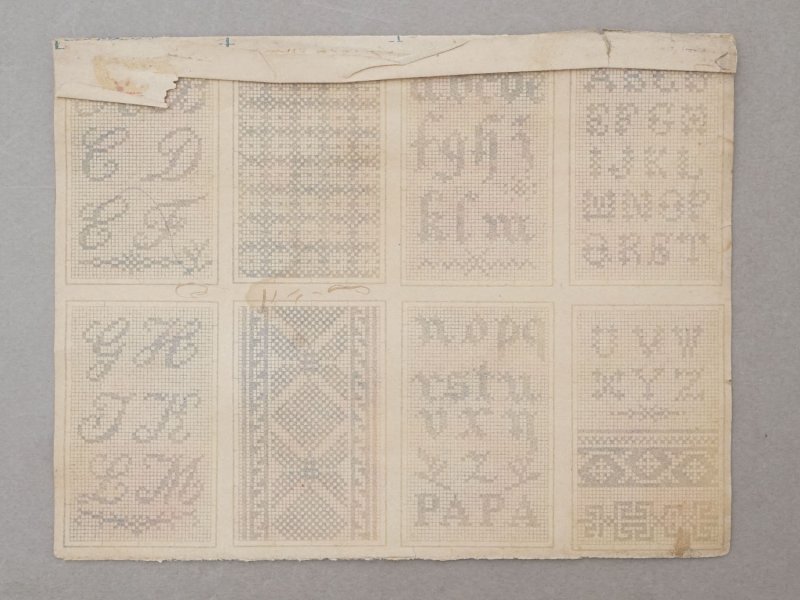 C D
E F
f g h j
k l m
A B C D
E F G H
I J K L
M N O P
Q R S T
G H
I K
L M
n o p q
r s t u
v x y
z
PAPA
U V W
X Y Z